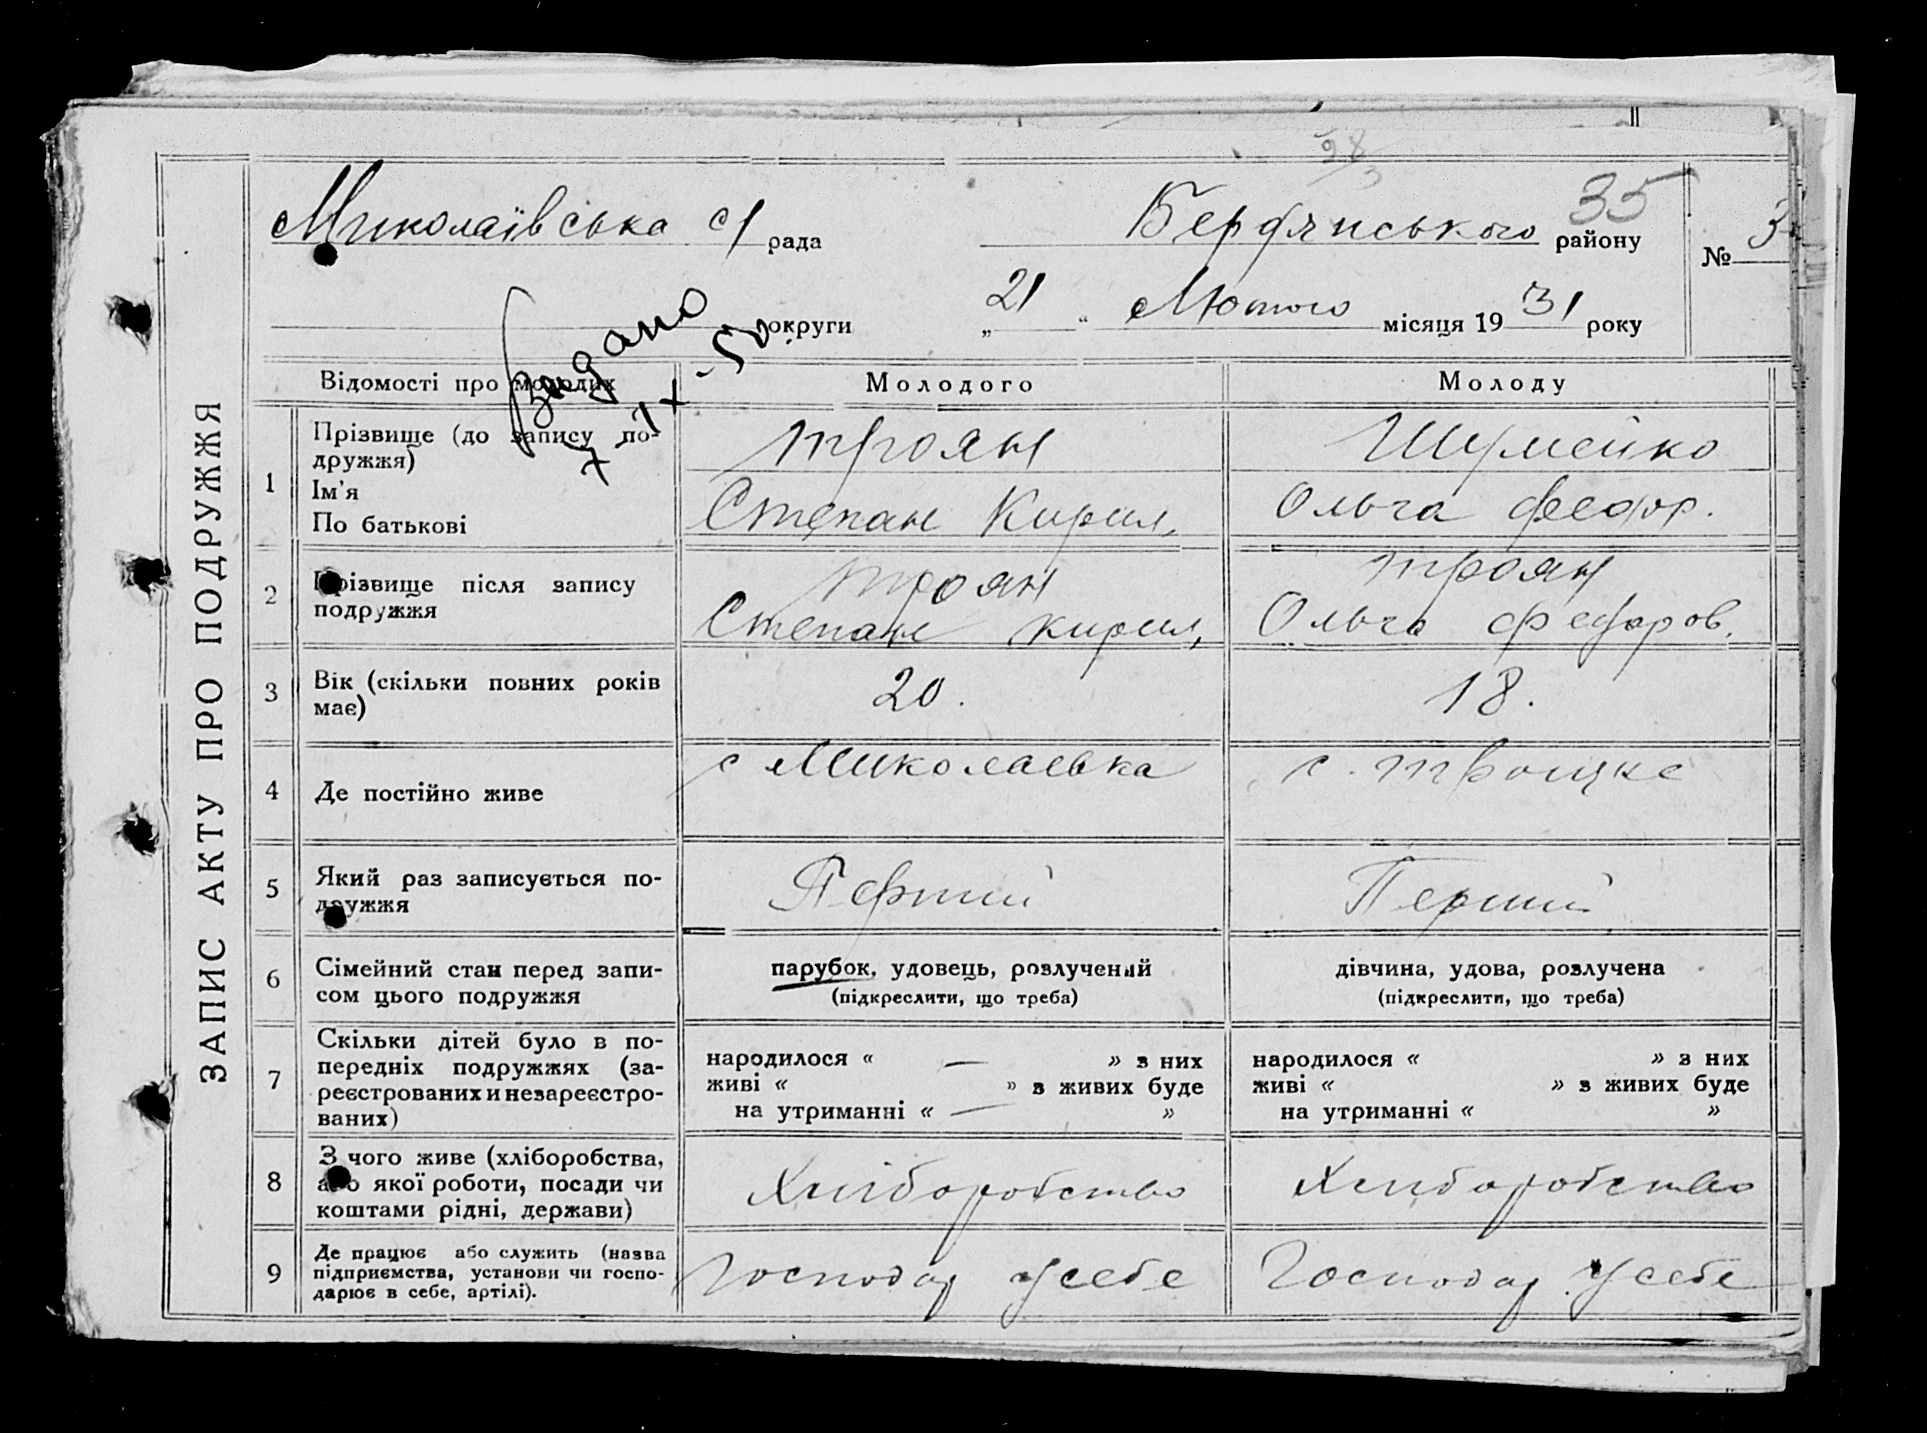 ЗАПИС АКТУ ПРО ПОДРУЖЖЯ
Миколаївська с/рада
Бердянського району
35
№ 3
округи
„21“ Лютого місяця 1931 року
Відомості про молодих
Молодого
Молоду
1
Прізвище (до запису по-
дружжя)
Ім'я
По батькові
Троян
Степан Кирил.
Шумейко
Ольга Федор.
2
Прізвище після запису
подружжя
Троян
Степан Кирил.
Троян
Ольга Федоров.
3
Вік (скільки повних років
має)
20.
18.
4
Де постійно живе
с Миколаевка
с. Троицке
5
Який раз записується по-
дружжя
Перший
Перший
6
Сімейний стан перед запи-
сом цього подружжя
парубок, удовець, розлучений
(підкреслити, що треба)
дівчина, удова, розлучена
(підкреслити, що треба)
7
Скільки дітей було в по-
передніх подружжях (за-
реєстрованих и незареєстро-
ваних)
народилося « — » з них
живі « » з живих буде
на утриманні « — »
народилося « » з них
живі « » з живих буде
на утриманні « »
8
З чого живе (хліборобства,
або якої роботи, посади чи
коштами рідні, держави)
Хліборобство
Хлиборобство
9
Де працює або служить (назва
підприємства, установи чи госпо-
дарює в себе, артілі).
Господар у себе
Господар у себе